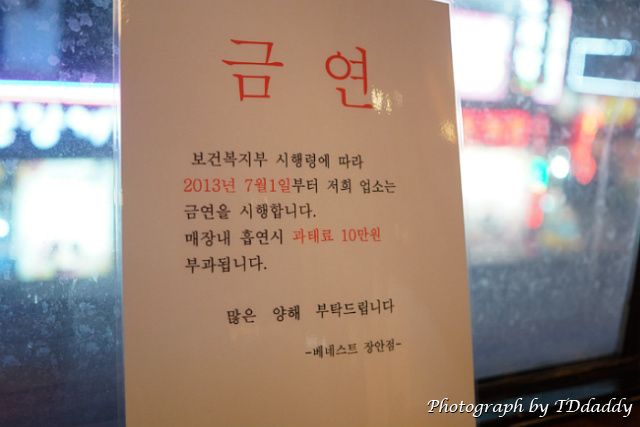 금 연
보건복지부 시행령에 따라
2013년 7월1일부터 저희 업소는
금연을 시행합니다.
매장내 흡연시 과태료 10만원
부과됩니다.
많은 양해 부탁드립니다
-베네스트 장안점-
Photograph by TDdaddy